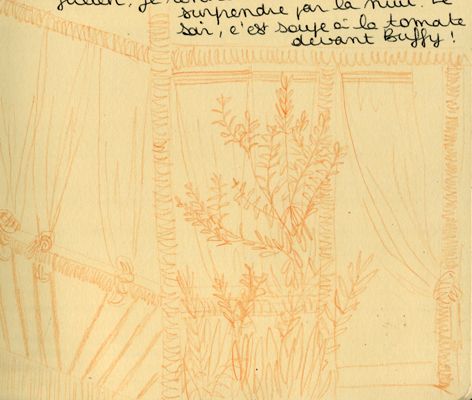 je
surprendre par la nuit. Le
soir, c'est soupe à la tomate
devant Buffy !